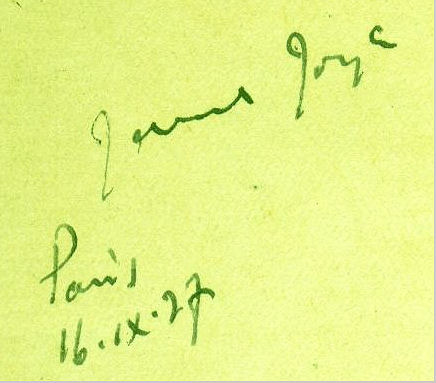 James Joyce
Paris
16.IX.27